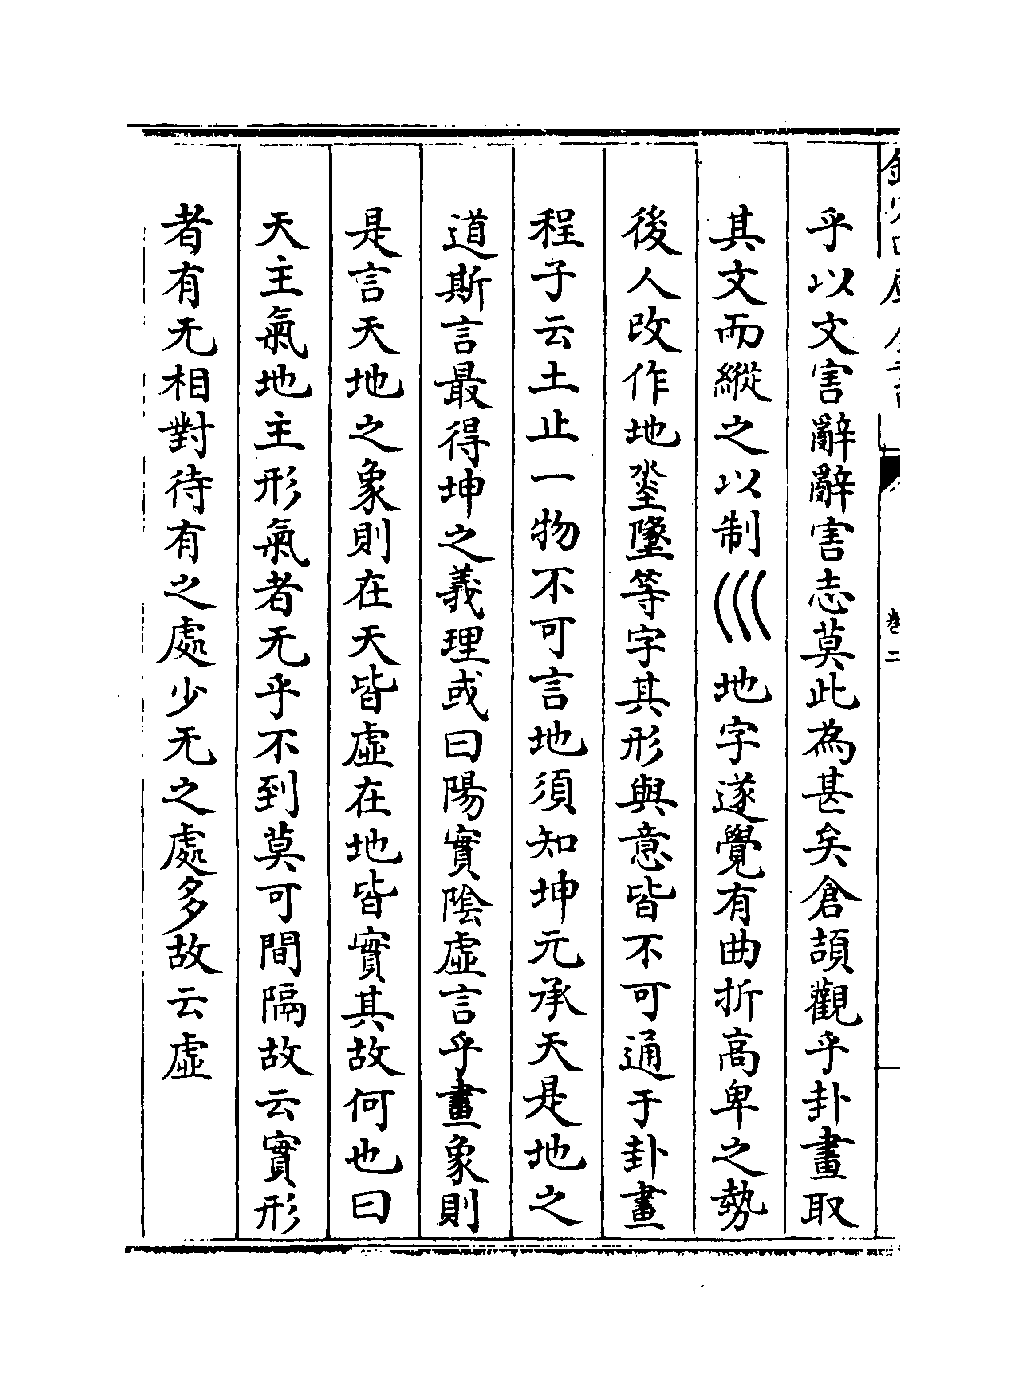 乎以文害辭辭害志莫此為甚矣倉頡觀乎卦畫取
其文而縱之以制巛地字遂覺有曲折高卑之勢
後人改作地埊墬等字其形與意皆不可通于卦畫
程子云土止一物不可言地須知坤元承天是地之
道斯言最得坤之義理或曰陽實陰虛言乎畫象則
是言天地之象則在天皆虛在地皆實其故何也曰
天主氣地主形氣者无乎不到莫可間隔故云實形
者有无相對待有之處少无之處多故云虛
卷二